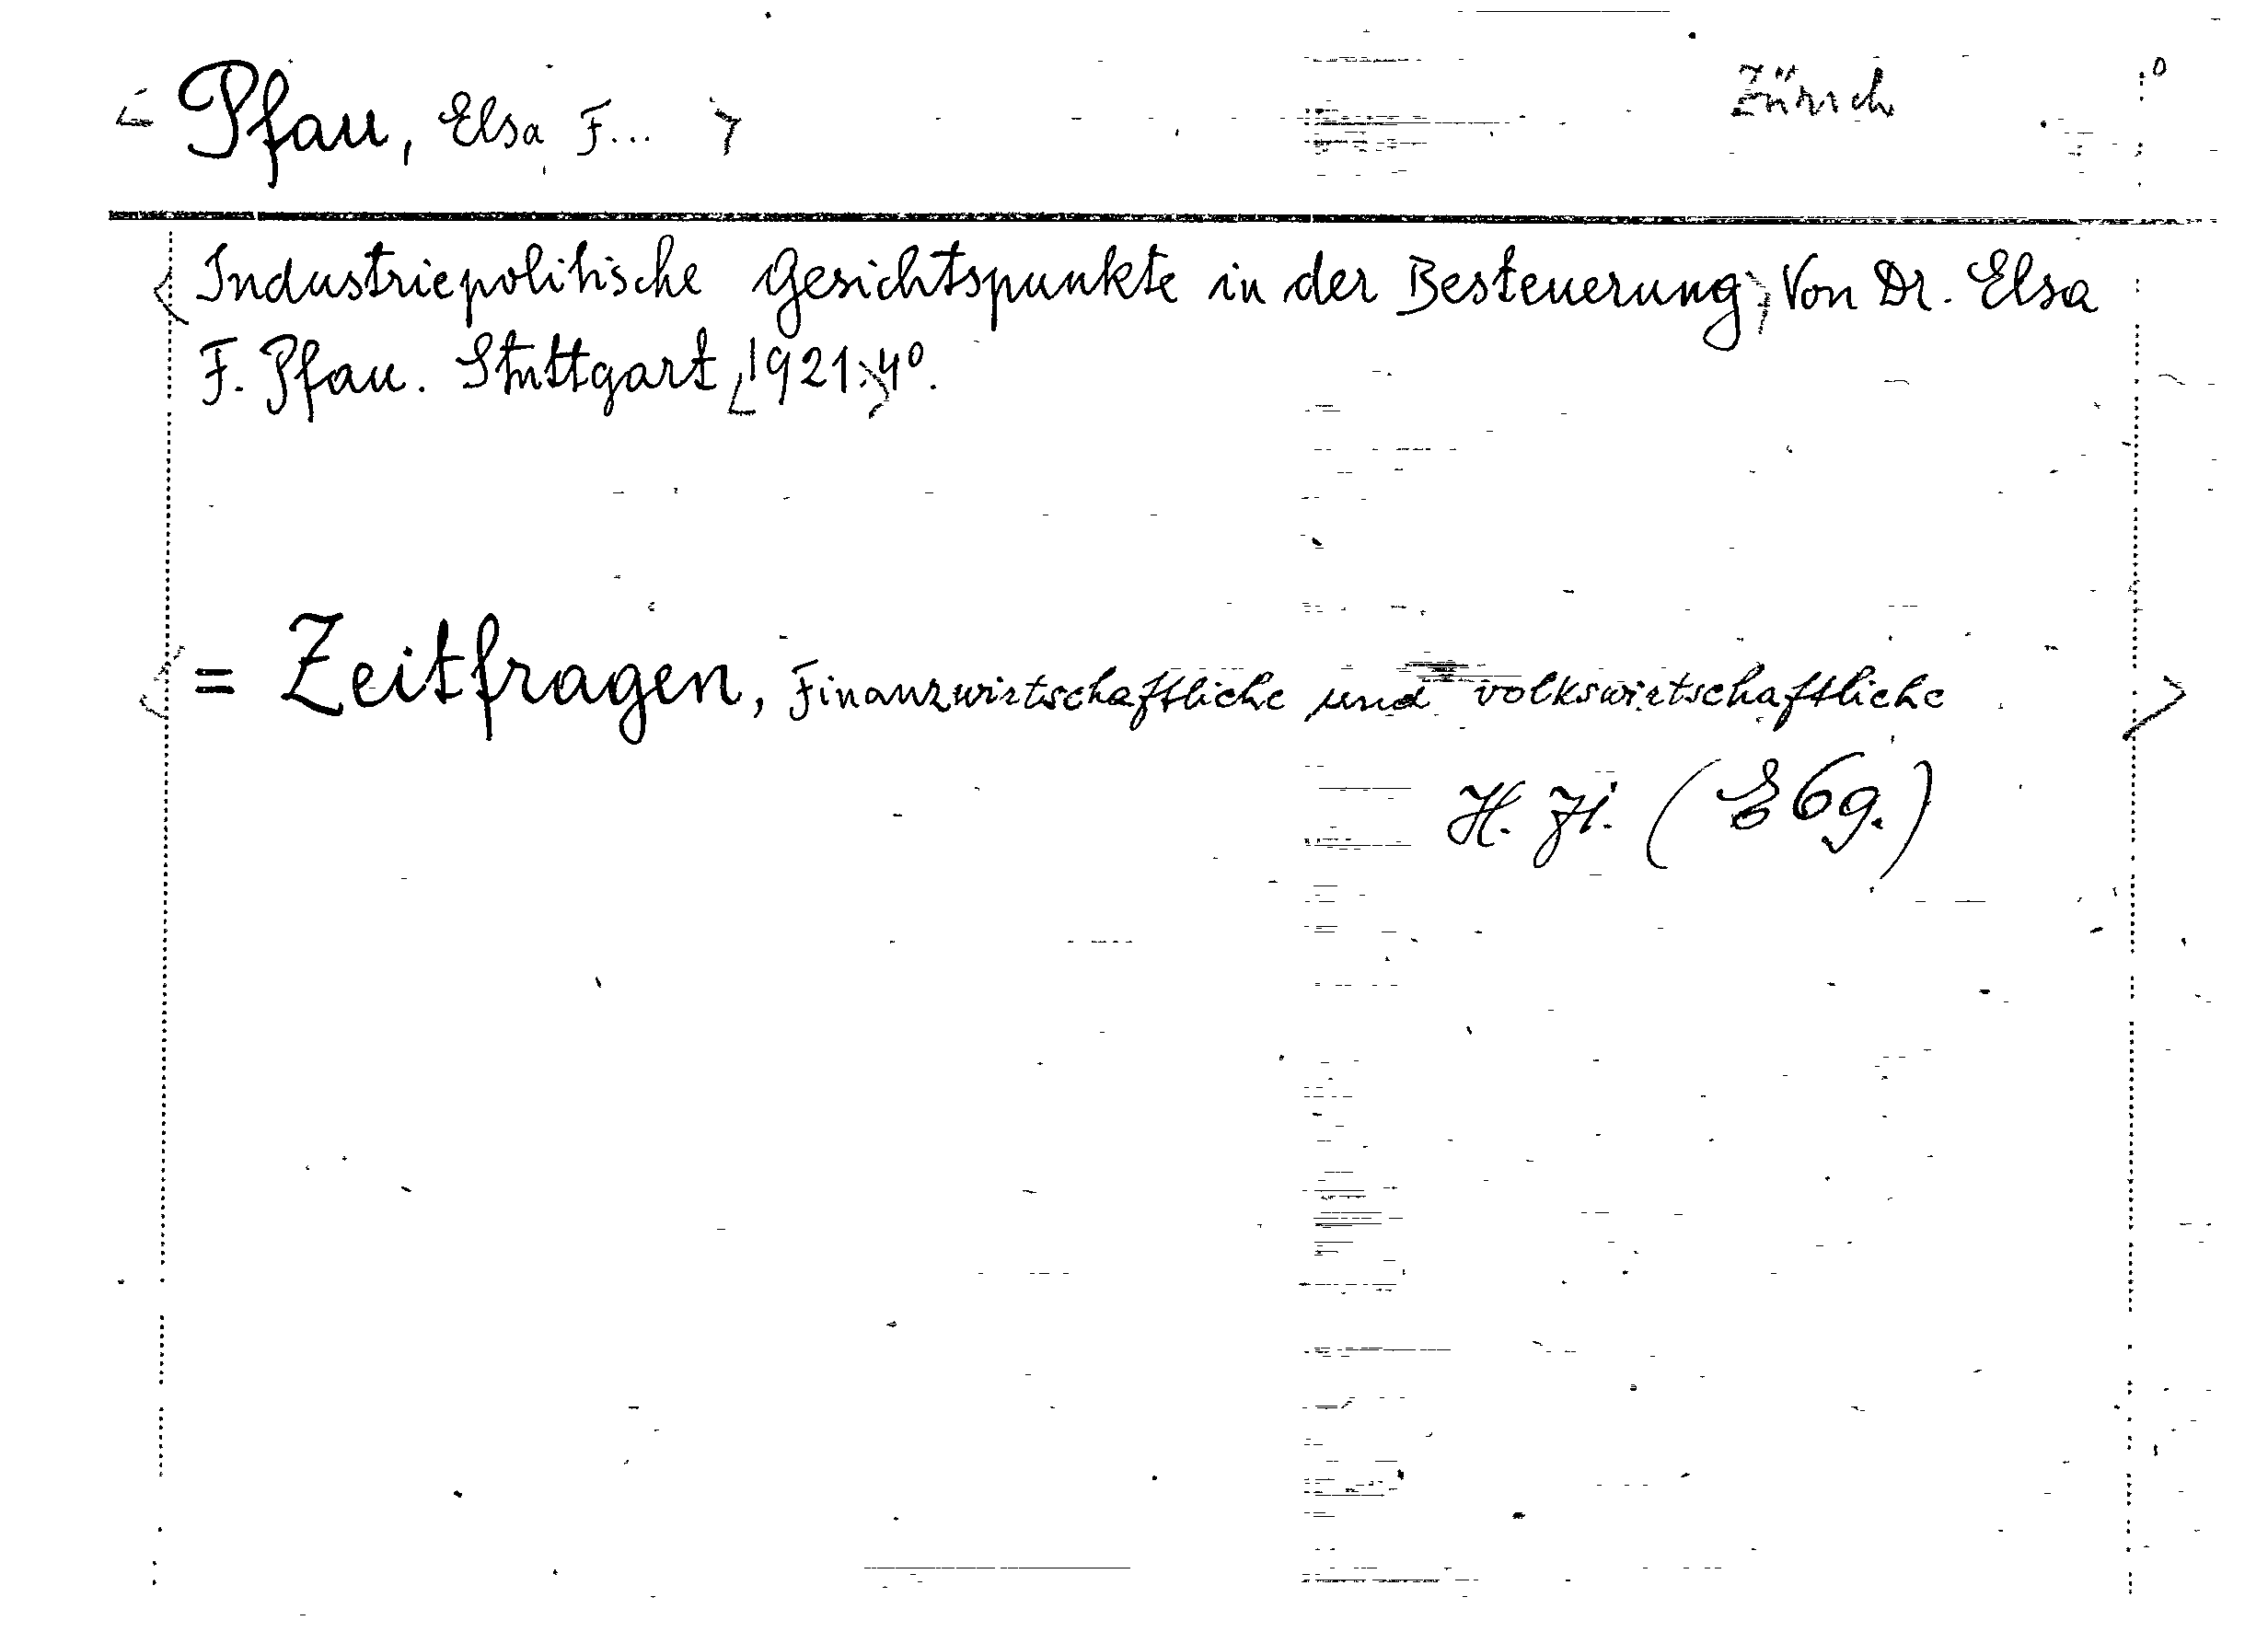 < Pfau, Elsa F... > Zürich
< Industriepolitische Gesichtspunkte in der Besteuerung> Von Dr. Elsa
F. Pfau. Stuttgart <1921.> 4°.
< = Zeitfragen, Finanzwirtschaftliche und volkswirtschaftliche >